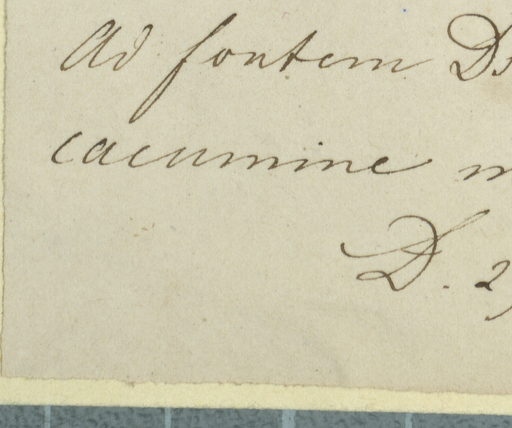 Ad fontem
cacumine
D. 2